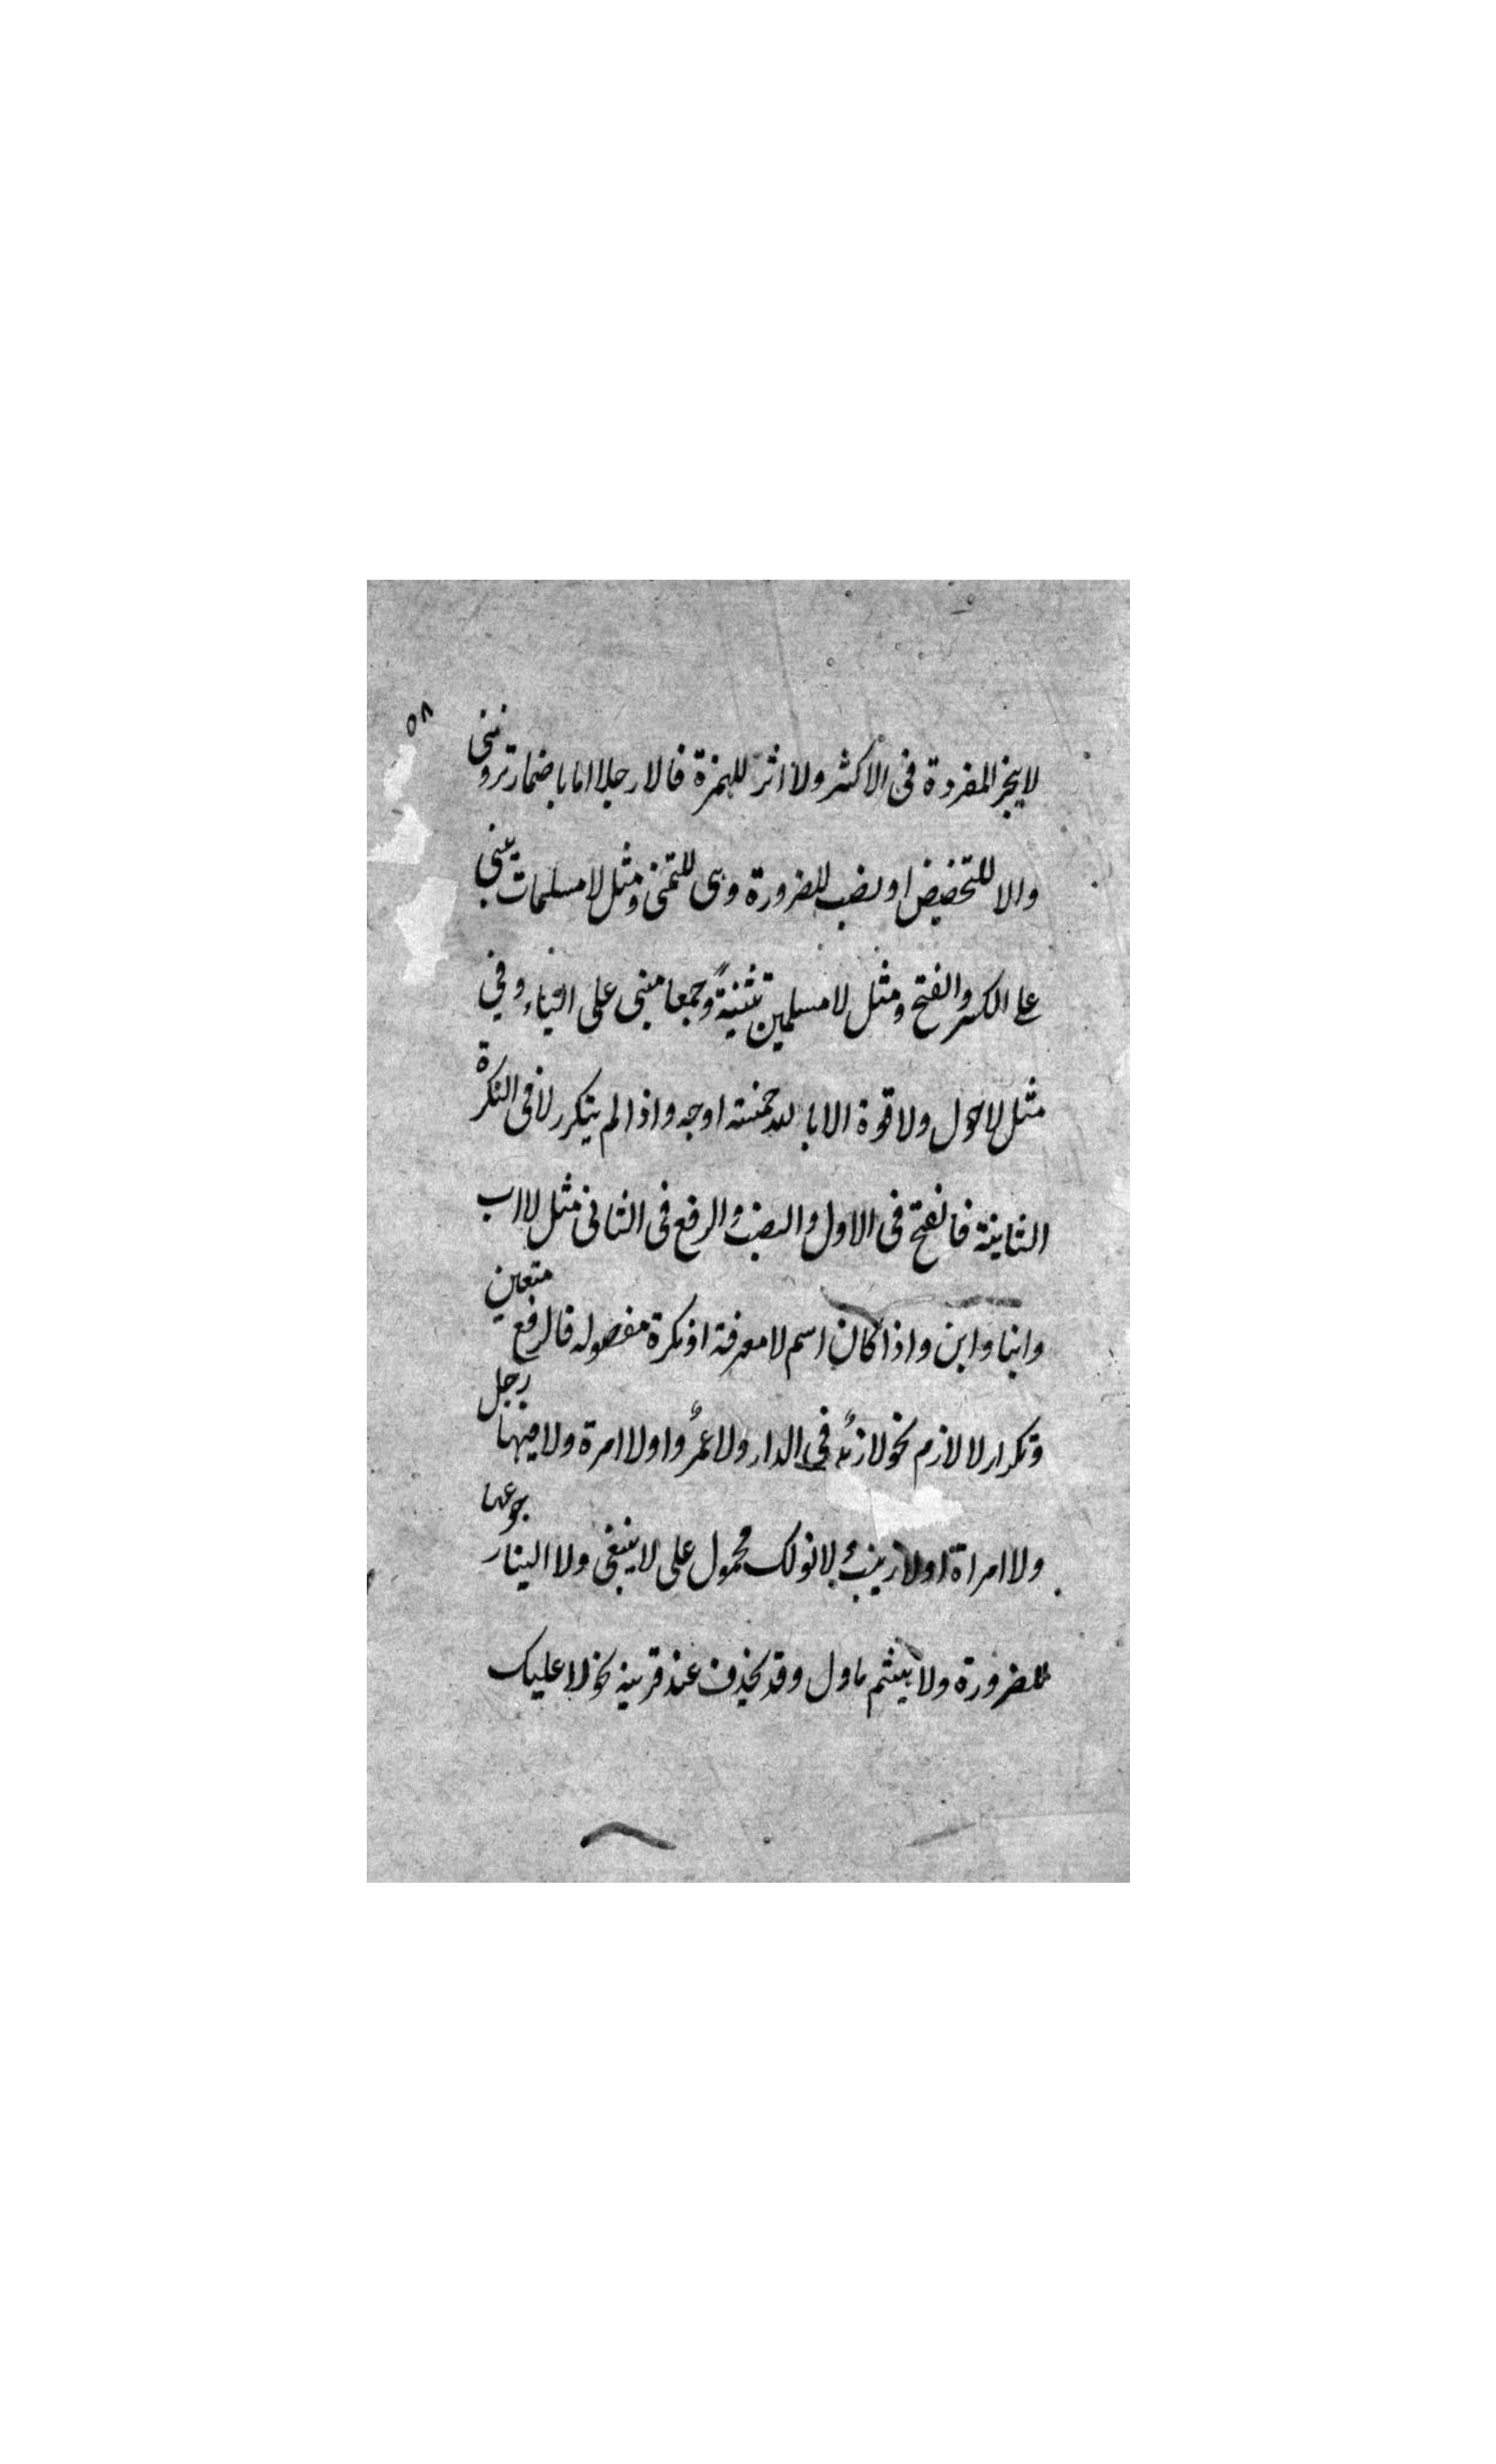 ٥٨
لا يجز المفردة فى الاكثر ولا اثر للهمزة فالا رجلا اما باضمار ترونني
والا للتحضيض او نصب للضرورة وهى للتمنى ومثل لا مسلمات يبنى
على الكسر والفتح ومثل لا مسلمين تثنيةً وجمعا مبنى على الياء وفي
مثل لا حول ولا قوة الا بالله خمسة اوجه واذا لم يتكرر لا فى النكرة
الثانية فالفتح فى الاول والنصب والرفع فى الثانى مثل لا اب
وابنا وابن واذا كان اسم لا معرفة او نكرة مفصوله فالرفع متعين
وتكرار لا لازم نحو لا زيدٌ فى الدار ولا عمرٌو او لا امرة ولا فيها رجل
ولا امراة اولا زينبُ لا نولك محمول على لا ينبغى ولا الينا رجوعها
للضرورة ولا هيثم ماول وقد يحذف عند قرينة نحو لا عليك